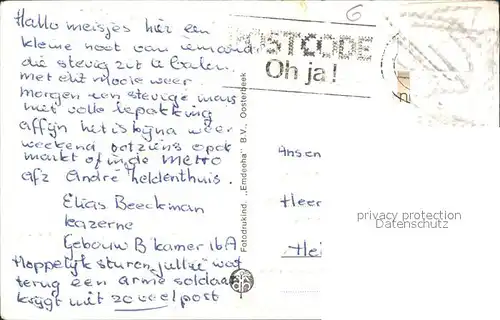 Hallo meisjes hier een
kleine noot van iemand
die stevig zit te balen.
met dit mooie weer
morgen een stevige mars
met volle bepakking
affijn het is bijna weer
weekend, tot ziens op de
markt of in de Metro
afz André heldenthuis.
Elias Beeckman
kazerne
Gebouw B kamer 16A
Hoppelyk sturen jullie wat
terug een arme soldaat
krygt niet zo veel post
6
POSTCODE
Oh ja!
Fotodrukind. „Emdeeha" B.V., Oosterbeek
Ansen
Heer
Hei
privacy protection
Datenschutz